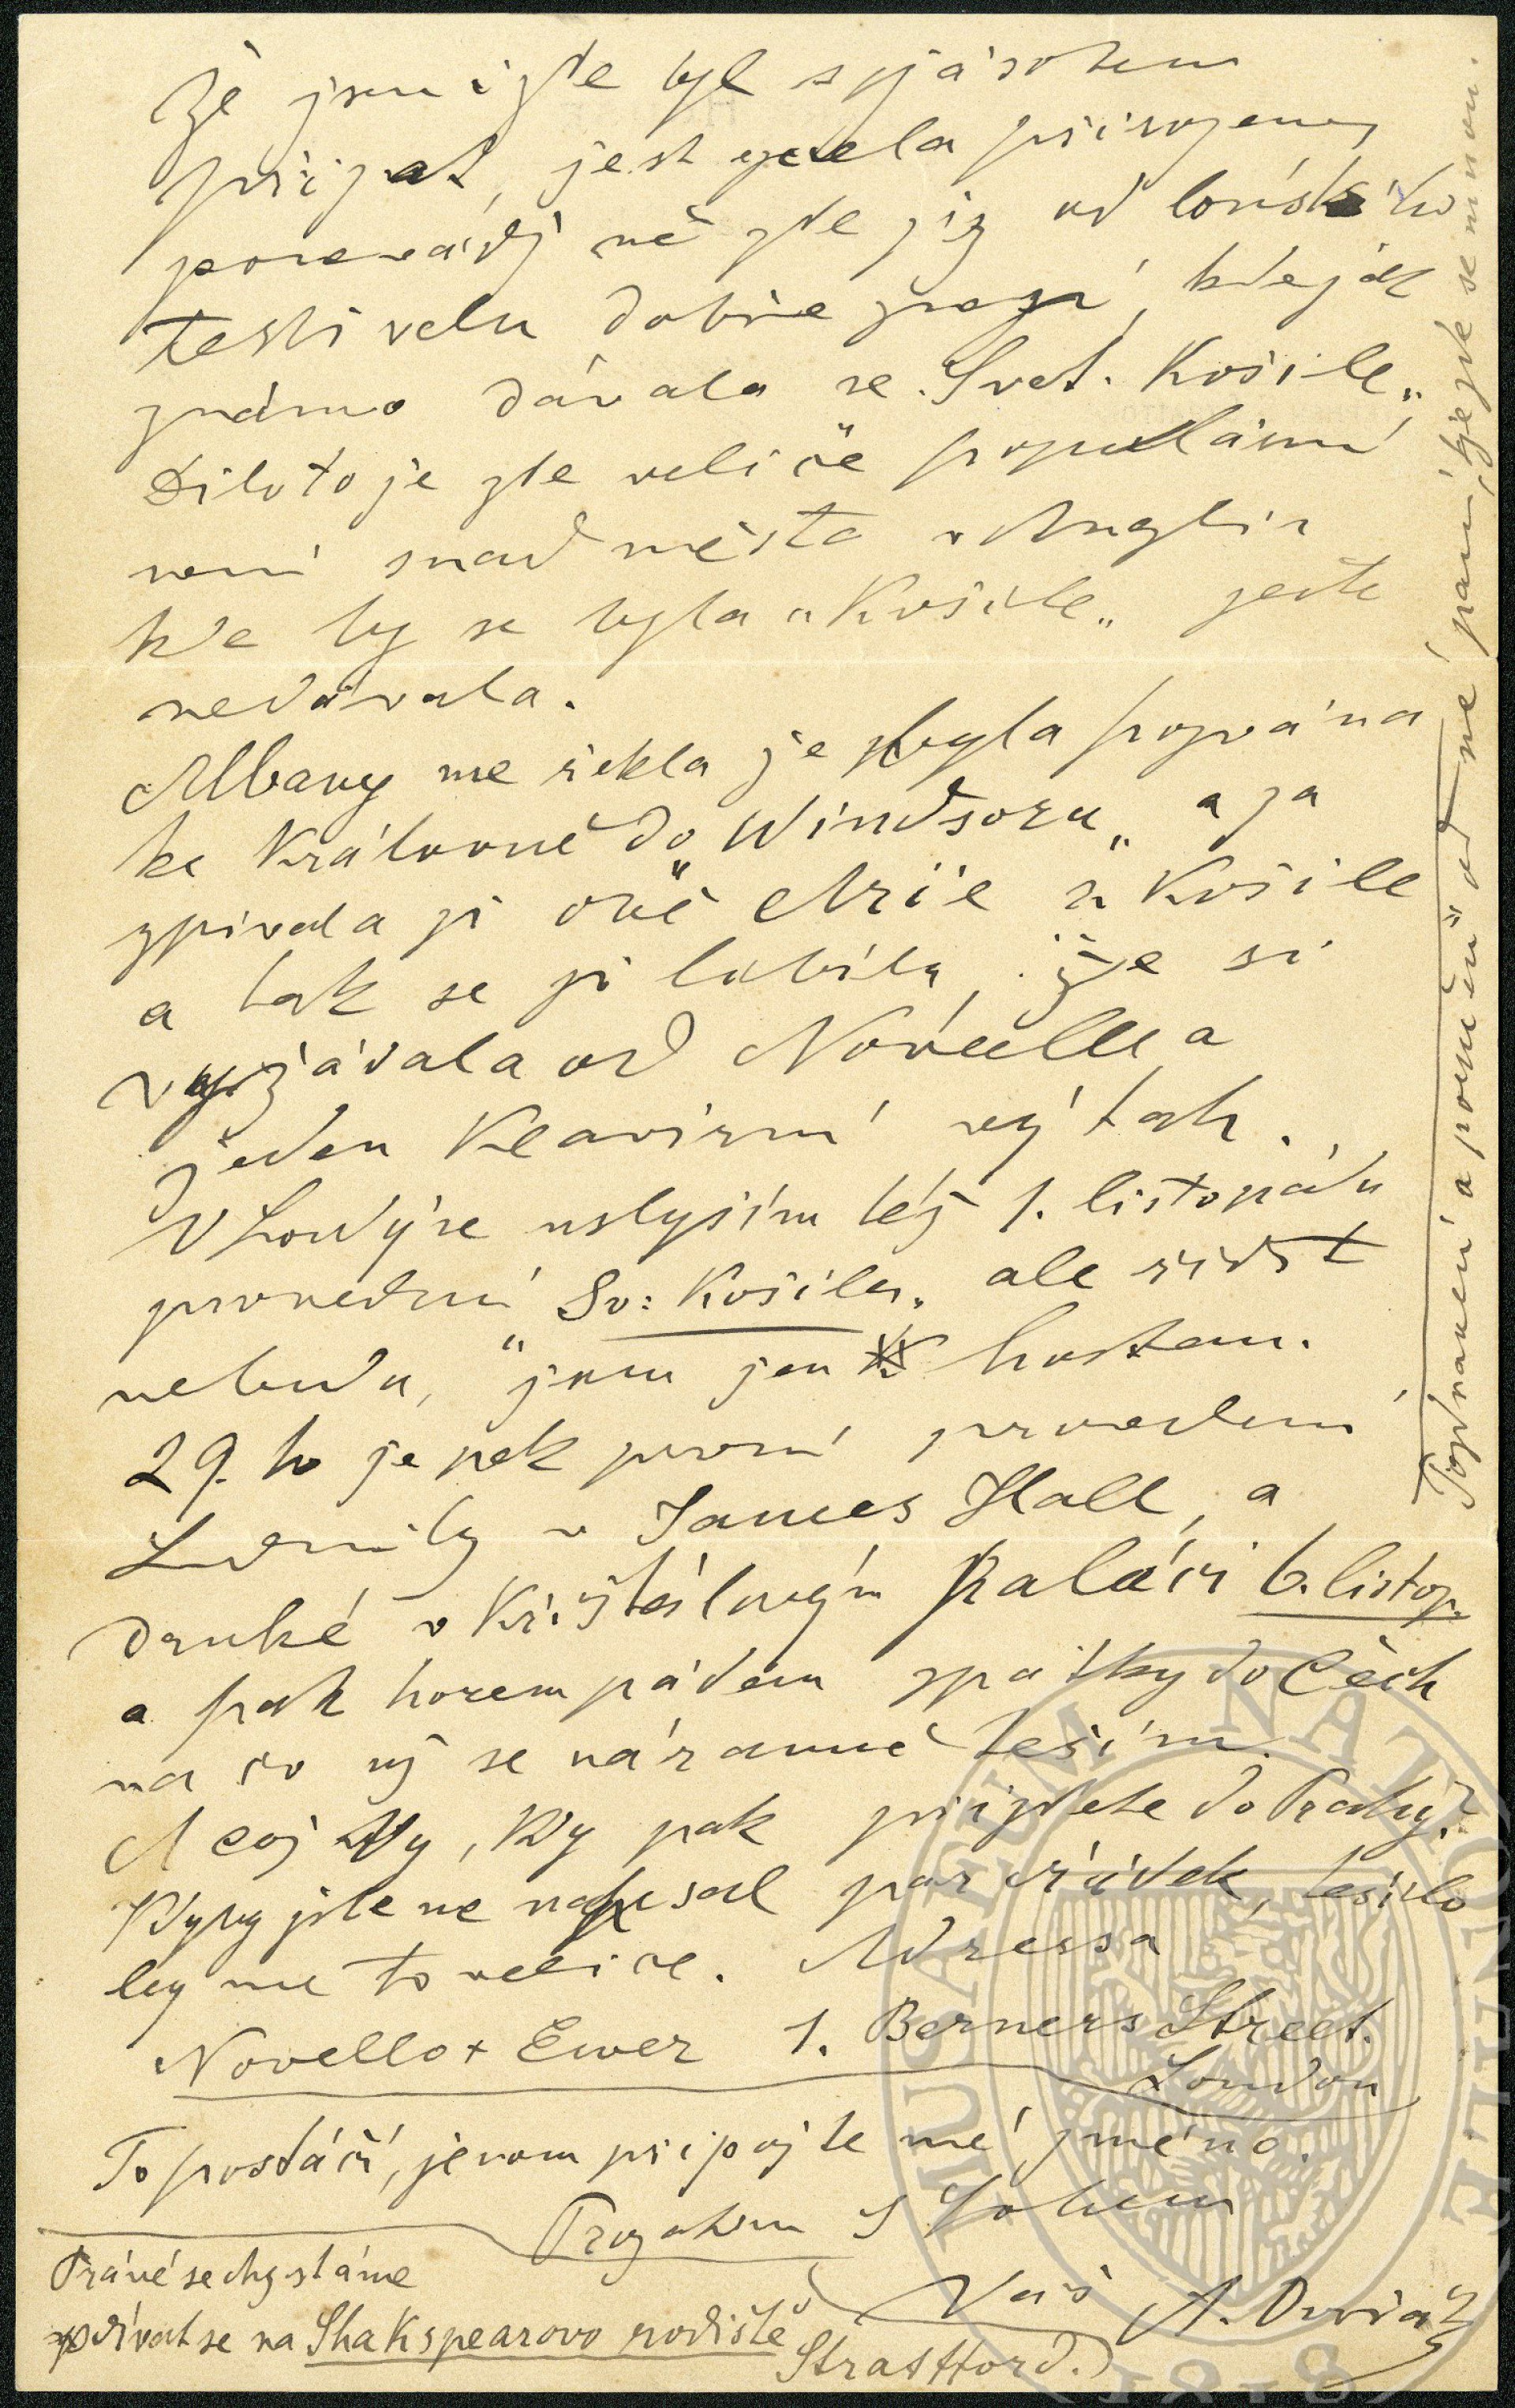 že jsem i zde byl s jásotem
přijat, jest zcela přirozeno,
poněvádž mě zde již od loňského
festivalu dobře znají, kdež jak
známo dávala se „Svat. Košile„
Dílo to je zde veliče populární
není snad města v Anglii
kde by se byla „Košile„ ješte
nedávala.
Albany me řekla že byla pozvána
ke Královně do Windsoru„ a ja
zpívala ji obě Arie z Košile
a tak se ji libíla, že si
vyžádala od Novella
jeden Klavírní výtah.
V Londýne uslyším též 1. listopádu
provedení Sv: Košile„ ale řídit
nebudu, "jsem jen hostem.
29. ho je pak první provedení
Ludmily v James Hall, a
druhé v Krištálovým Paláci 6. listop.
a pak horem pádem zpátky do Čech
na co už se náramně těším.
A což Vy, kdy pak přijdete do Prahy?
Kdyby jste me napsal par řádek, tešilo
by me to veliče. Adressa
Novello + Ewer 1. Berners Street.
London
To postáčí, jenom připojte mé jméno.
Prozatim s Bohem
Váš A. Dvořák
Právě se chystáme
podívat se na Shakspearovo rodiště
Strattford.)
Pozdravení a poručení od mé paní, jež je zde se mnou.
MUSAEUM NATIONALE BOHEMIAE
1818